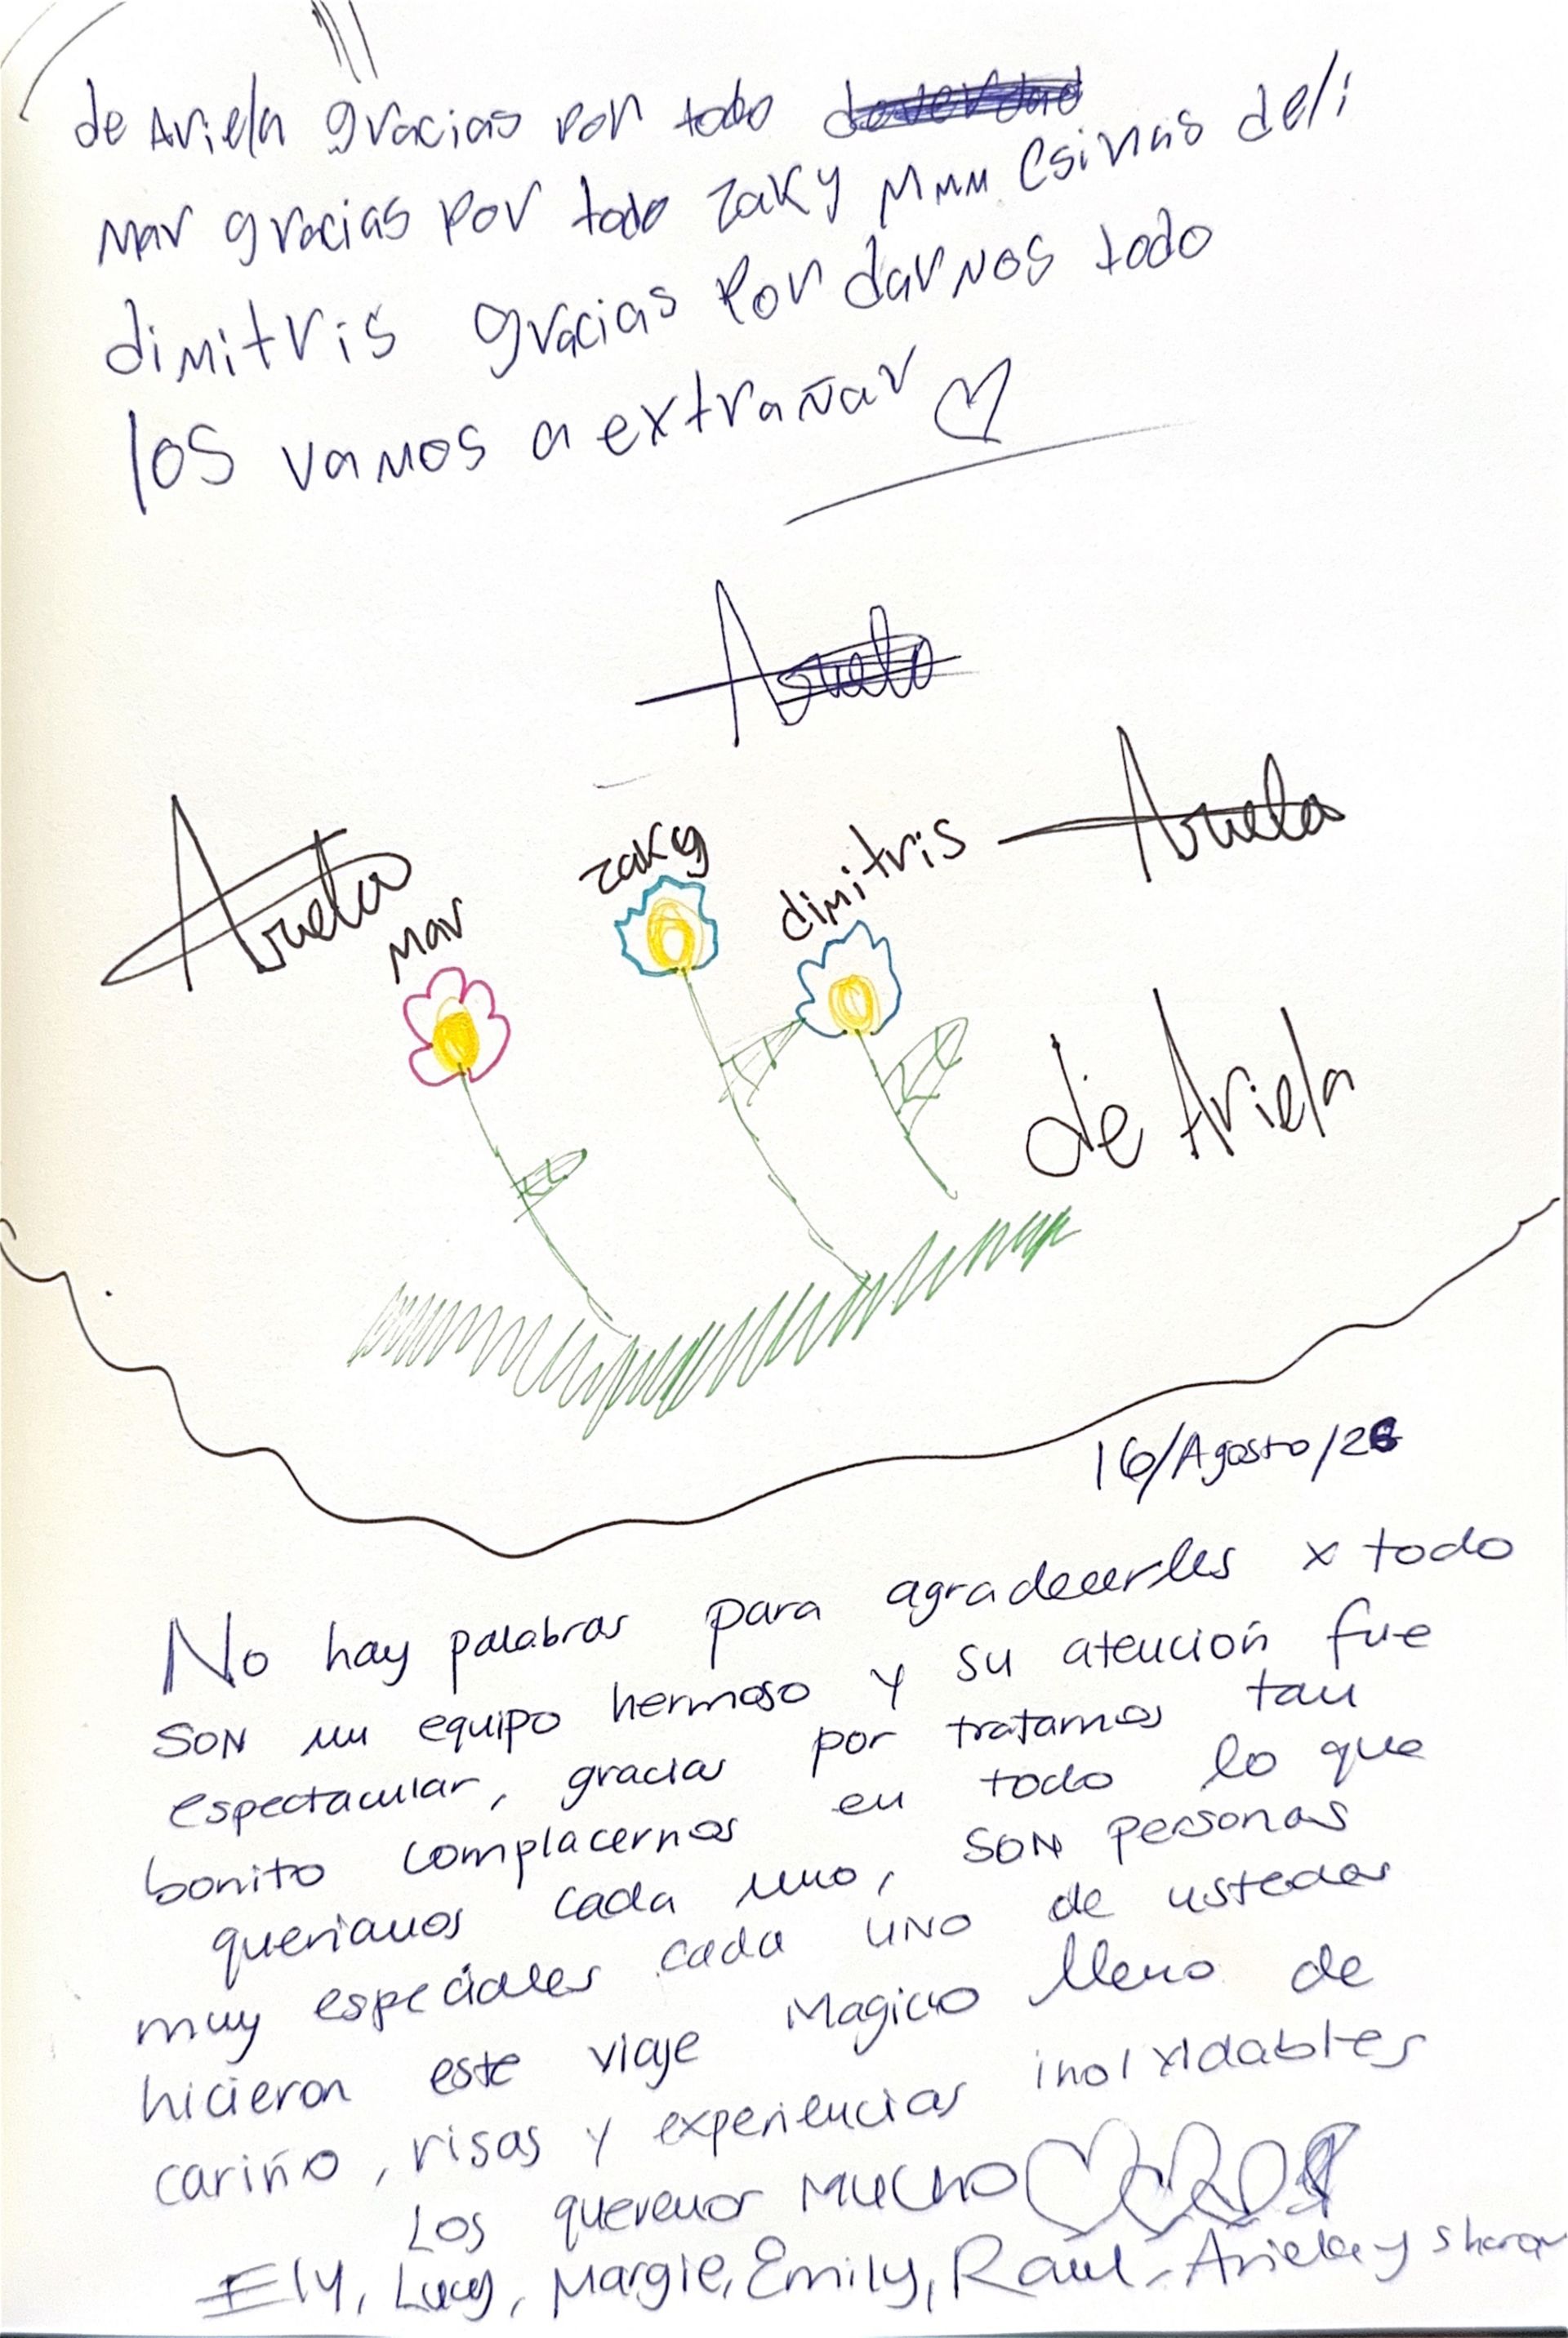 de Ariela gracias por todo
mar gracias por todo zaky mmm Csinas deli
dimitris gracias por darnos todo
los vamos a extrañar
Ariela
zaky
dimitris
Ariela
Ariela
mar
de Ariela
16/Agosto/26
No hay palabras para agradecerles x todo
SON un equipo hermoso y su atención fue
espectacular, gracias por tratarnos tan
bonito complacernos en todo lo que
queriamos cada uno, SON personas
muy especiales cada UNO de ustedes
hicieron este viaje Magico lleno de
cariño, risas y experiencias inolvidables
Los queremos MUCHO
Ely, Lucy, Margie, Emily, Raul, Ariela y sharon